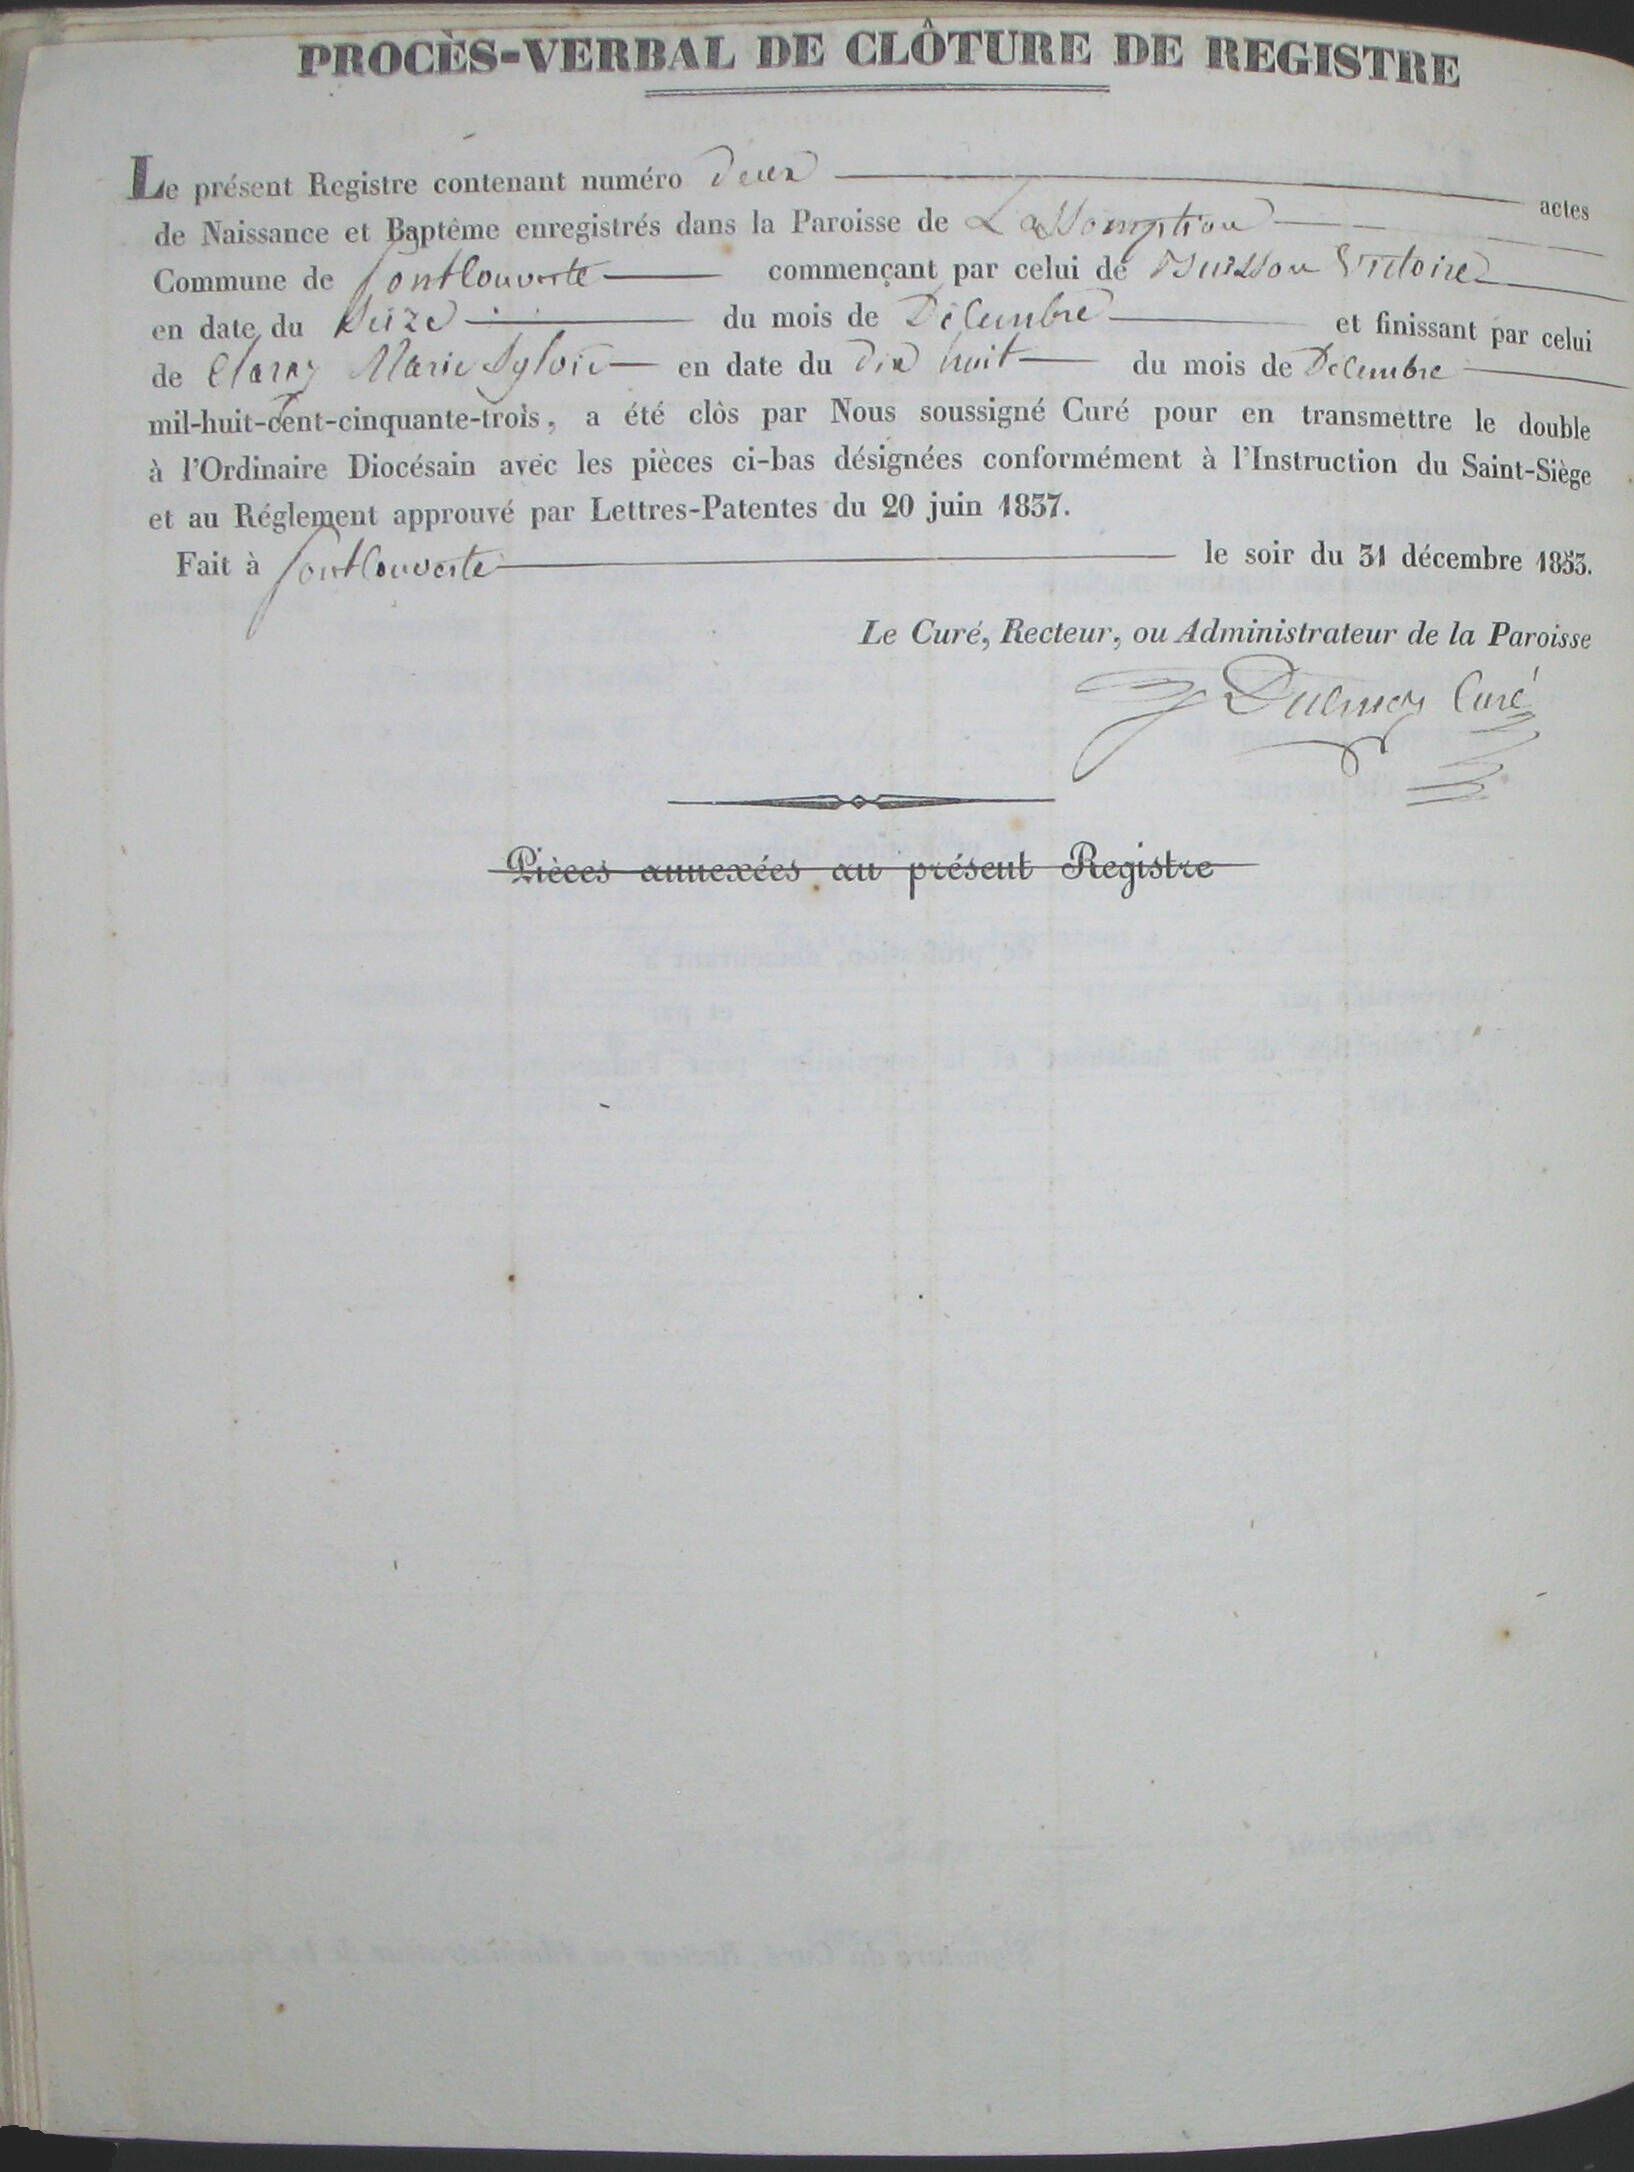 PROCÈS-VERBAL DE CLÔTURE DE REGISTRE
Le présent Registre contenant numéro deux actes
de Naissance et Baptême enregistrés dans la Paroisse de Lassomption
Commune de fontCouverte commençant par celui de Buisson Victoire
en date du Seize du mois de Décembre et finissant par celui
de Claraz Marie Sylvie en date du dix huit du mois de Décembre
mil-huit-cent-cinquante-trois, a été clòs par Nous soussigné Curé pour en transmettre le double
à l'Ordinaire Diocésain avec les pièces ci-bas désignées conformément à l'Instruction du Saint-Siège
et au Réglement approuvé par Lettres-Patentes du 20 juin 1837.
Fait à fontCouverte le soir du 31 décembre 1853.
Le Curé, Recteur, ou Administrateur de la Paroisse
Curé
Pièces annexées au présent Registre